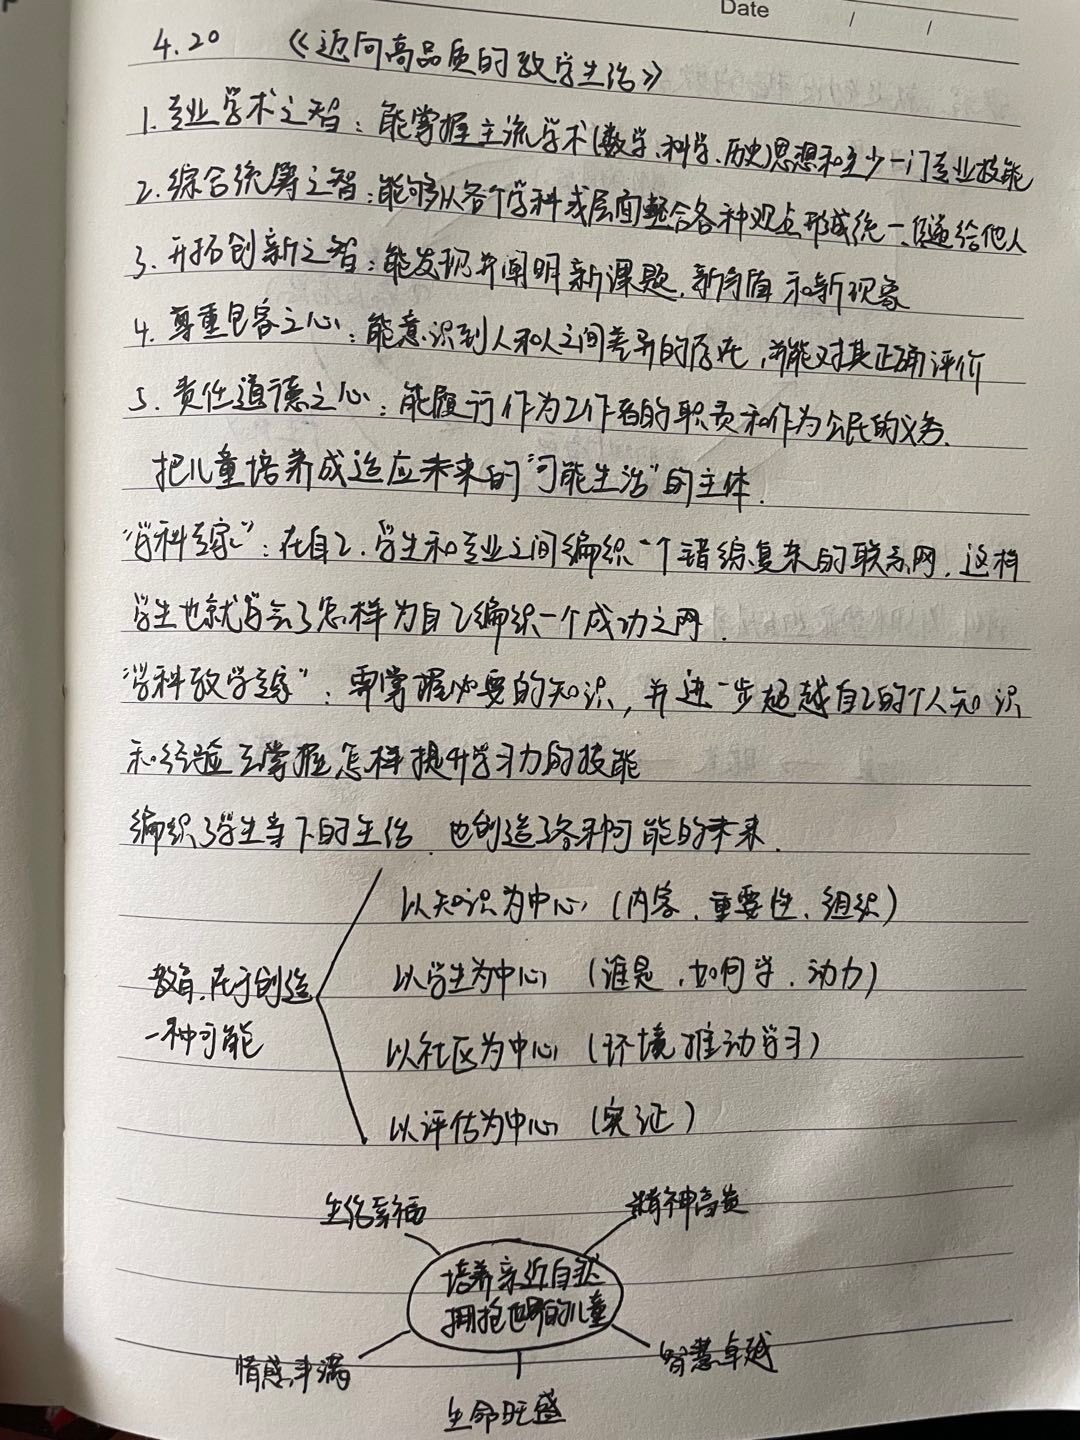 Date / /
4.20 《迈向高品质的教学生活》
1. 专业学术之智：能掌握主流学术(数学、科学、历史)思想和至少一门专业技能
2. 综合统筹之智：能够从各个学科或层面整合各种观点形成统一、传递给他人
3. 开拓创新之智：能发现并阐明新课题、新问题和新现象
4. 尊重包容之心：能意识到人和人之间差异的存在，并能对其正确评价
5. 责任道德之心：能履行作为工作者的职责和作为公民的义务.
把儿童培养成适应未来的“可能生活”的主体.
“学科专家”：在自己、学生和专业之间编织一个错综复杂的联系网，这样
学生也就学会了怎样为自己编织一个成功之网.
“学科教学专家”：需掌握必要的知识，并进一步超越自己的个人知识
和经验去掌握怎样提升学习力的技能
编织了学生当下的生活，也创造了各种可能的未来.
以知识为中心（内容、重要性、组织）
教育，在于创造 以学生为中心（谁是、如何学、动力）
一种可能
以社区为中心（环境推动学习）
以评估为中心（实证）
生活幸福 精神高贵
培养亲近自然
拥抱世界的儿童
情感丰满 智慧卓越
生命旺盛